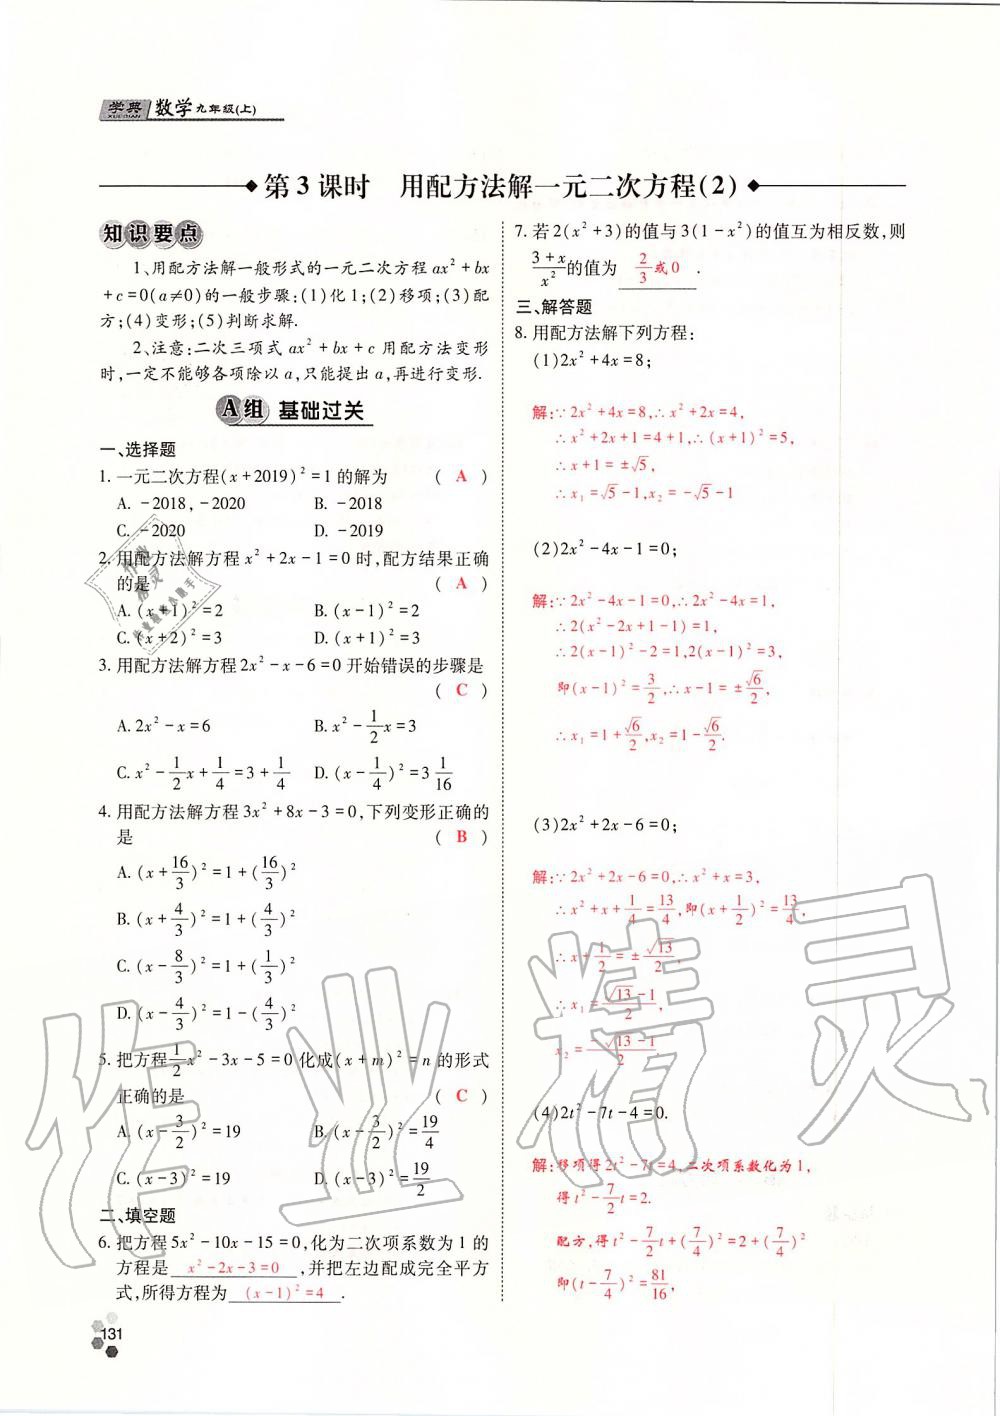 学典 数学九年级(上)
XUEDIAN
第3课时 用配方法解一元二次方程(2)
知识要点
1、用配方法解一般形式的一元二次方程 ax²+bx
+c=0(a≠0)的一般步骤:(1)化1;(2)移项;(3)配
方;(4)变形;(5)判断求解.
2、注意:二次三项式 ax²+bx+c 用配方法变形
时,一定不能够各项除以a,只能提出a,再进行变形.
A组 基础过关
一、选择题
1. 一元二次方程(x+2019)²=1的解为 ( A )
A. -2018,-2020 B. -2018
C. -2020 D. -2019
2. 用配方法解方程 x²+2x-1=0时,配方结果正确
的是 ( A )
A. (x+1)²=2 B. (x-1)²=2
C. (x+2)²=3 D. (x+1)²=3
3. 用配方法解方程2x²-x-6=0开始错误的步骤是
( C )
A. 2x²-x=6 B. x²-1/2x=3
C. x²-1/2x+1/4=3+1/4 D. (x-1/4)²=3 1/16
4. 用配方法解方程3x²+8x-3=0,下列变形正确的
是 ( B )
A. (x+16/3)²=1+(16/3)²
B. (x+4/3)²=1+(4/3)²
C. (x-8/3)²=1+(1/3)²
D. (x-4/3)²=1-(4/3)²
5. 把方程1/2x²-3x-5=0化成(x+m)²=n的形式
正确的是 ( C )
A. (x-3/2)²=19 B. (x-3/2)²=19/4
C. (x-3)²=19 D. (x-3)²=19/2
二、填空题
6. 把方程5x²-10x-15=0,化为二次项系数为1的
方程是 x²-2x-3=0 ,并把左边配成完全平方
式,所得方程为 (x-1)²=4 .
131
7. 若2(x²+3)的值与3(1-x²)的值互为相反数,则
(3+x)/x²的值为 2/3或0 .
三、解答题
8. 用配方法解下列方程:
(1)2x²+4x=8;
解:∵2x²+4x=8,∴x²+2x=4,
∴x²+2x+1=4+1,∴(x+1)²=5,
∴x+1=±√5,
∴x₁=√5-1,x₂=-√5-1
(2)2x²-4x-1=0;
解:∵2x²-4x-1=0,∴2x²-4x=1,
∴2(x²-2x+1-1)=1,
∴2(x-1)²-2=1,2(x-1)²=3,
即(x-1)²=3/2,∴x-1=±√6/2,
∴x₁=1+√6/2,x₂=1-√6/2.
(3)2x²+2x-6=0;
解:∵2x²+2x-6=0,∴x²+x=3,
∴x²+x+1/4=13/4,即(x+1/2)²=13/4,
∴x+1/2=±√13/2,
∴x₁=(√13-1)/2,
x₂=(-√13-1)/2.
(4)2t²-7t-4=0.
解:移项得2t²-7t=4,二次项系数化为1,
得t²-7/2t=2.
配方,得t²-7/2t+(7/4)²=2+(7/4)²
即(t-7/4)²=81/16,
作业精灵